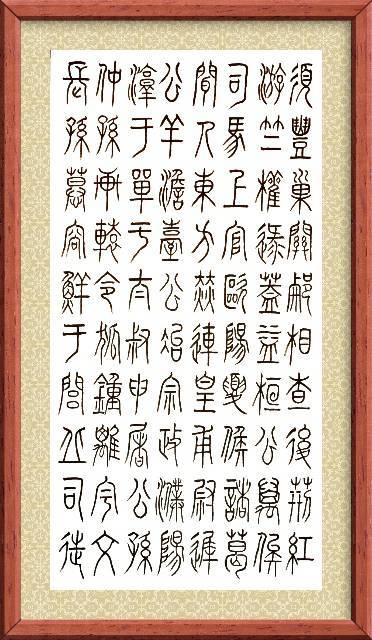 須豐巢關蒯相查後荊紅
游竺權逯蓋益桓公萬俟
司馬上官歐陽夏侯諸葛
聞人東方赫連皇甫尉遲
公羊澹臺公冶宗政濮陽
淳于單于太叔申屠公孫
仲孫軒轅令狐鍾離宇文
長孫慕容鮮于閭丘司徒